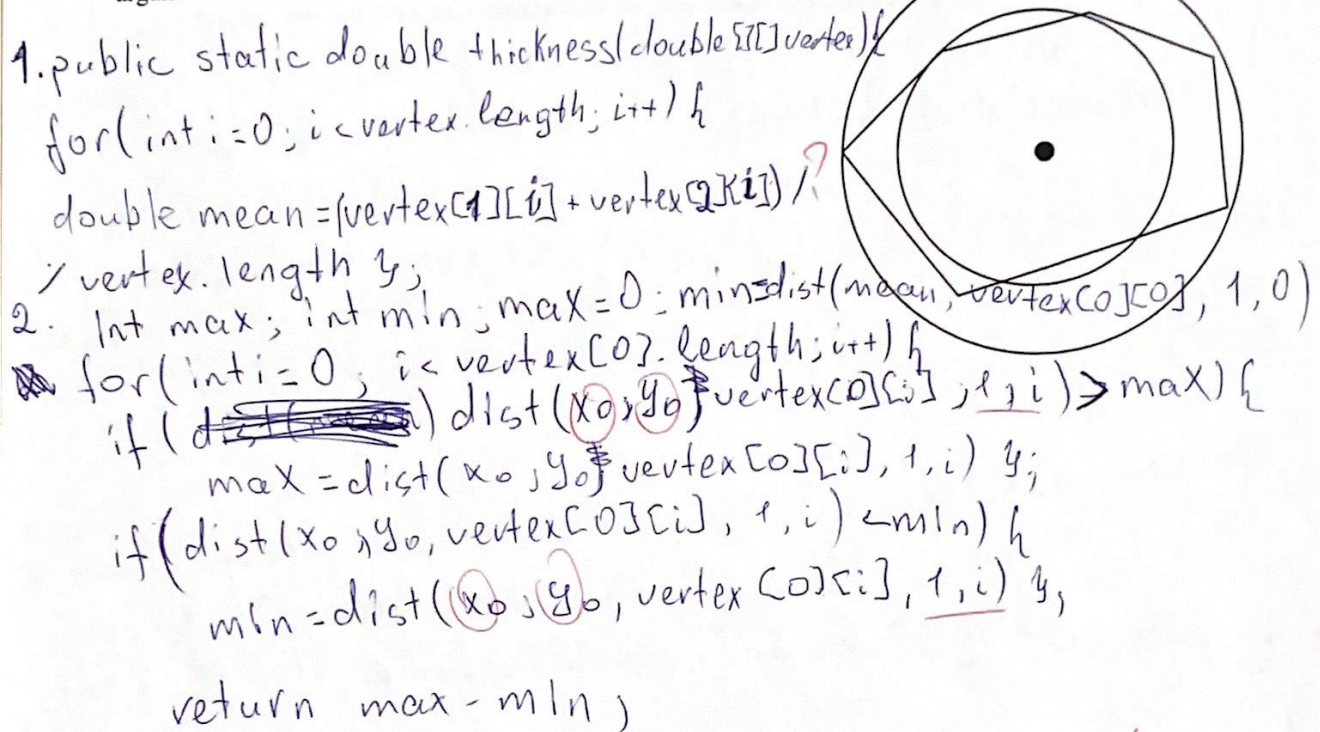 1. public static double thickness(double[][] vertex){
for(int i=0; i<vertex.length; i++) {
double mean=(vertex[1][i]+vertex[2][i]) / ?
/ vertex.length };
2. Int max; int min; max=0; min=dist(mean, vertex[0][0], 1,0)
for(int i=0; i<vertex[0].length; i++) {
if( ) dist(x0,y0, vertex[0][i], 1,i)>max) {
max=dist(x0,y0, vertex[0][i], 1,i) };
if(dist(x0,y0, vertex[0][i], 1,i) <min) {
min=dist(x0,y0, vertex[0][i], 1,i) };
return max-min;